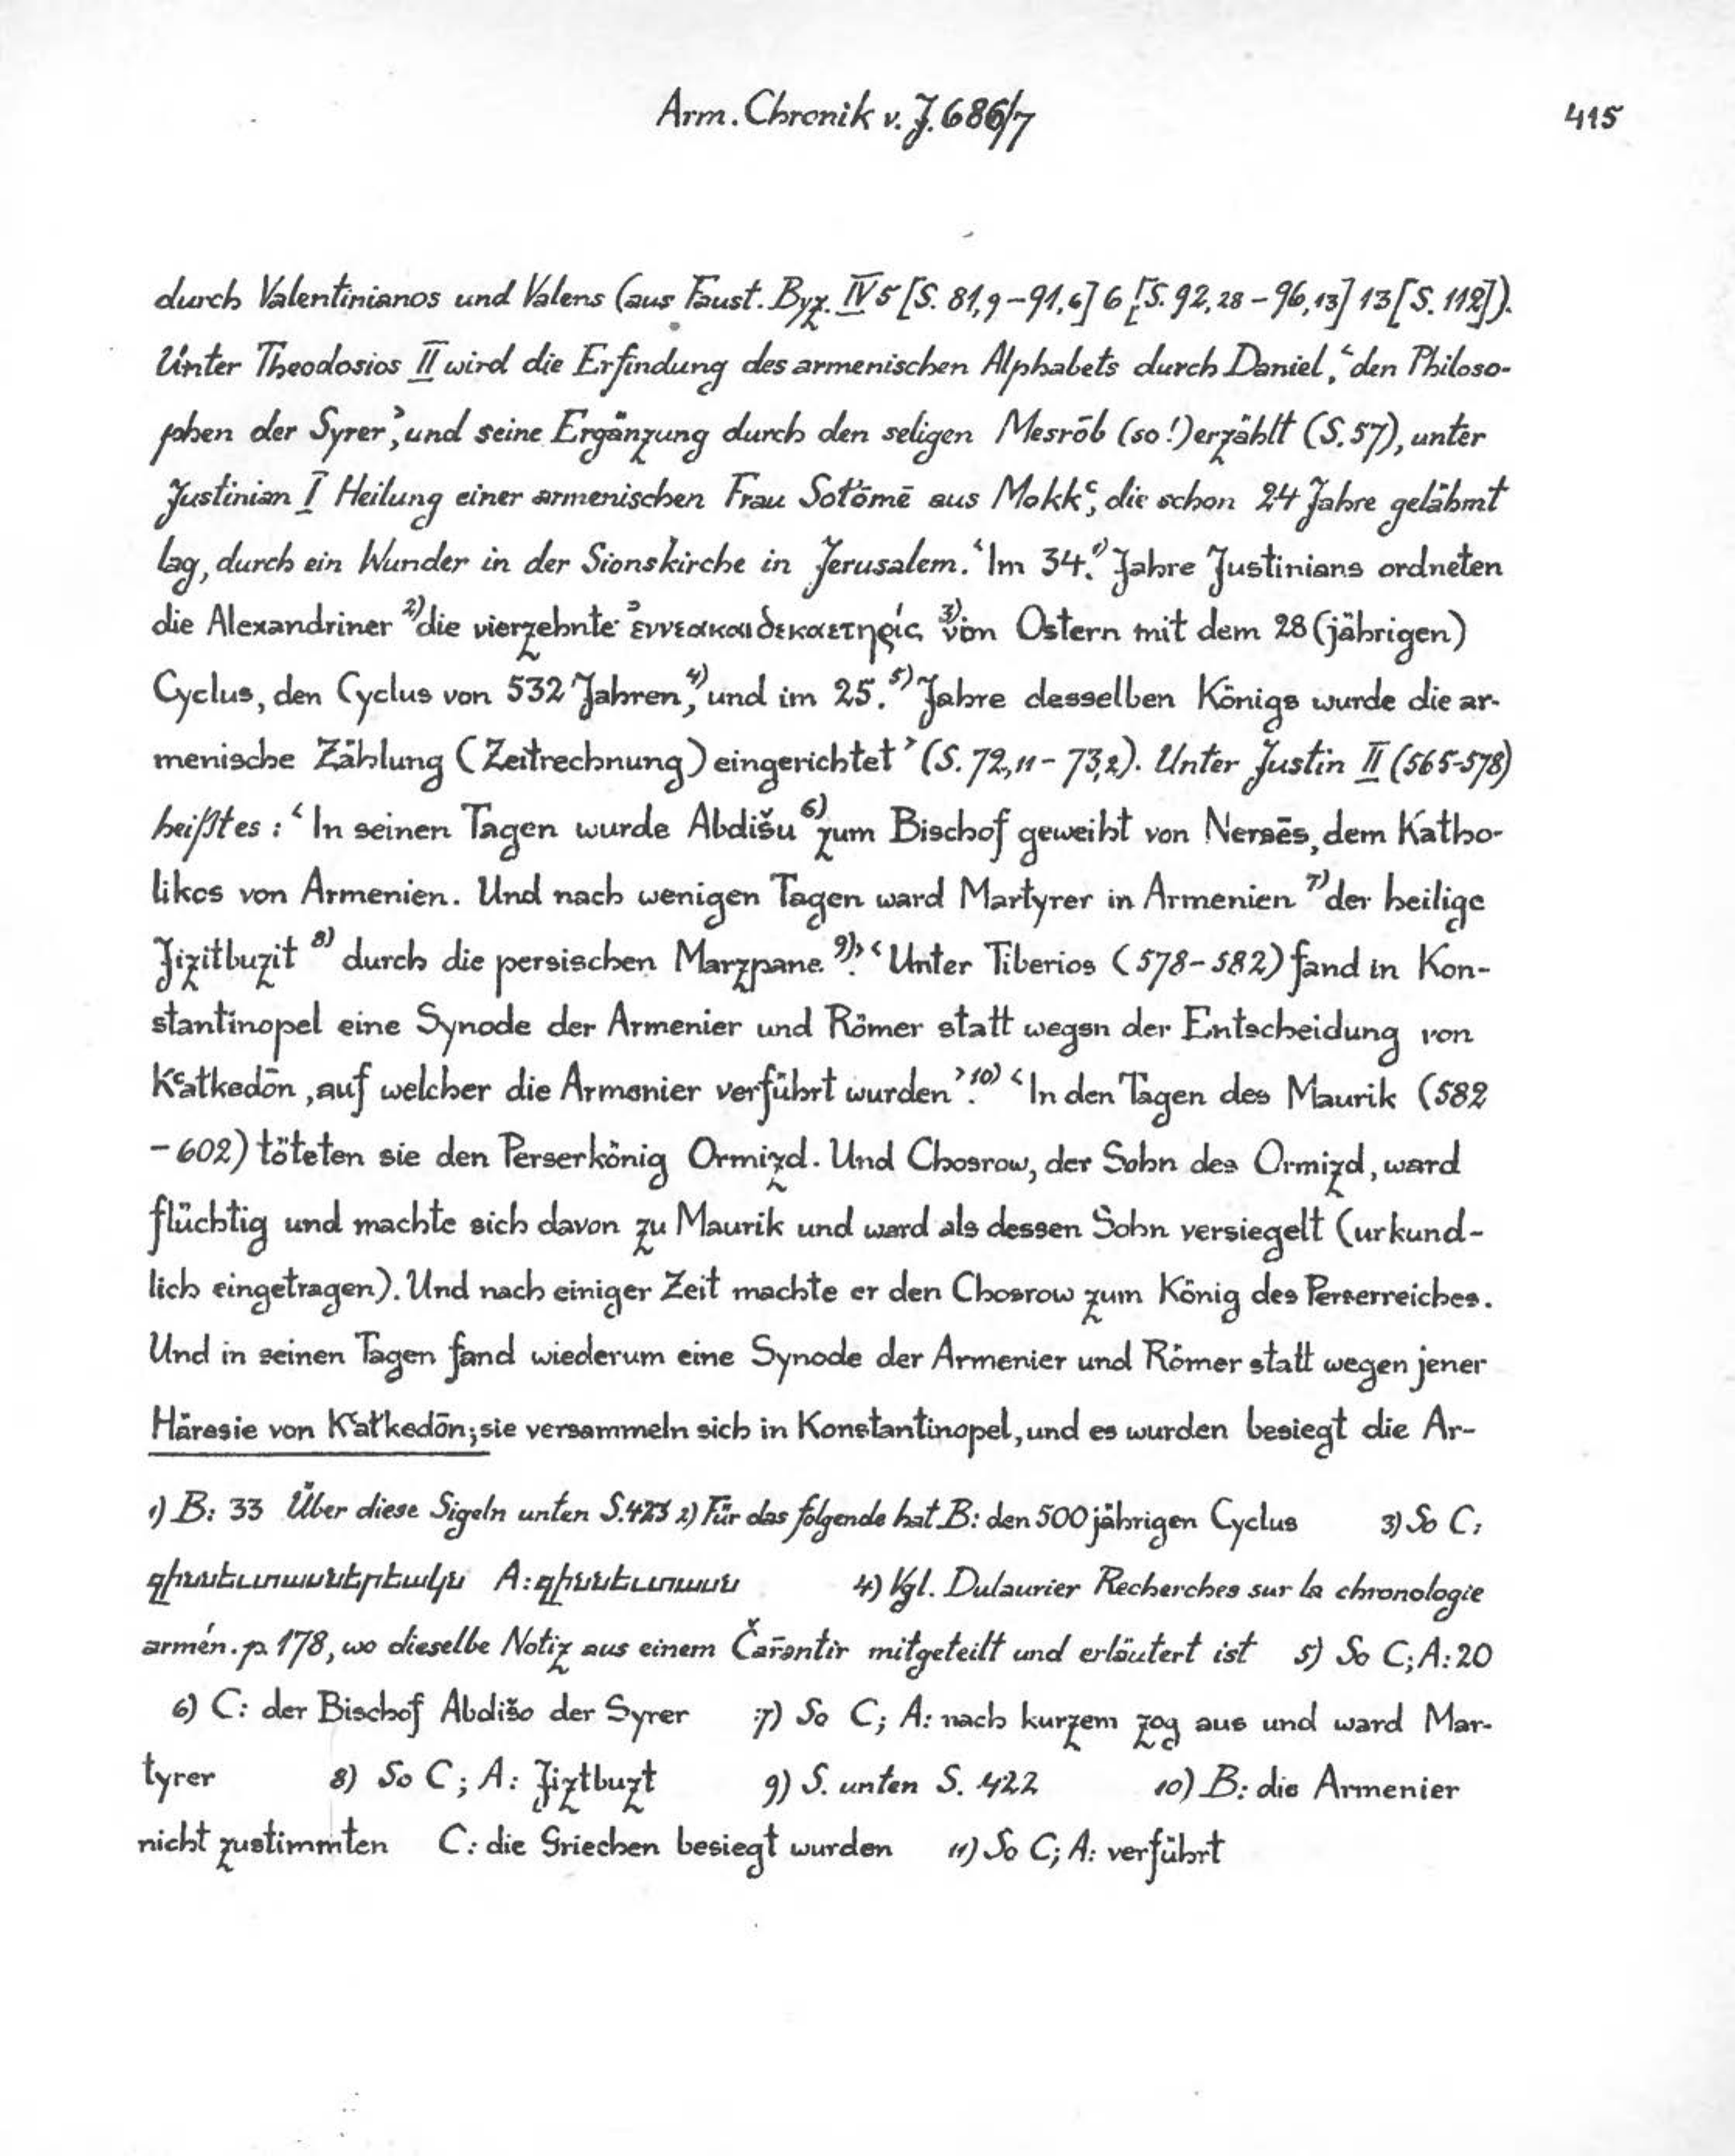 Arm. Chronik v. J. 686/7 415
durch Valentinianos und Valens (aus Faust. Byz. IV 5 [S. 81,9–91,6] 6 [S. 92,28–96,13] 13 [S. 112]).
Unter Theodosios II wird die Erfindung des armenischen Alphabets durch Daniel, ‘den Philoso-
phen der Syrer’, und seine Ergänzung durch den seligen Mesrōb (so!) erzählt (S. 57), unter
Justinian I Heilung einer armenischen Frau Sołōmē aus Mokkʿ, die schon 24 Jahre gelähmt
lag, durch ein Wunder in der Sionskirche in Jerusalem. ‘Im 34.¹⁾ Jahre Justinians ordneten
die Alexandriner ²⁾die vierzehnte ἐννεακαιδεκαετηρίς ³⁾ von Ostern mit dem 28(jährigen)
Cyclus, den Cyclus von 532 Jahren,⁴⁾ und im 25.⁵⁾ Jahre desselben Königs wurde die ar-
menische Zählung (Zeitrechnung) eingerichtet’ (S. 72,11–73,2). Unter Justin II (565-578)
heißt es: ‘In seinen Tagen wurde Abdišu⁶⁾ zum Bischof geweiht von Nersēs, dem Katho-
likos von Armenien. Und nach wenigen Tagen ward Martyrer in Armenien ⁷⁾der heilige
Jizitbuzit ⁸⁾ durch die persischen Marzpane ⁹⁾’. ‘Unter Tiberios (578-582) fand in Kon-
stantinopel eine Synode der Armenier und Römer statt wegen der Entscheidung von
Kʿałkedōn, auf welcher die Armenier verführt wurden’.¹⁰⁾ ‘In den Tagen des Maurik (582
–602) töteten sie den Perserkönig Ormizd. Und Chosrow, der Sohn des Ormizd, ward
flüchtig und machte sich davon zu Maurik und ward als dessen Sohn versiegelt (urkund-
lich eingetragen). Und nach einiger Zeit machte er den Chosrow zum König des Perserreiches.
Und in seinen Tagen fand wiederum eine Synode der Armenier und Römer statt wegen jener
Häresie von Kʿałkedōn; sie versammeln sich in Konstantinopel, und es wurden besiegt die Ar-
1) B: 33 Über diese Sigeln unten S. 423 2) Für das folgende hat B: den 500jährigen Cyclus 3) So C:
զիննեւտասներեակն A: զիննեւտասն 4) Vgl. Dulaurier Recherches sur la chronologie
armén. p. 178, wo dieselbe Notiz aus einem Čaṙəntir mitgeteilt und erläutert ist 5) So C; A: 20
6) C: der Bischof Abdišo der Syrer 7) So C; A: nach kurzem zog aus und ward Mar-
tyrer 8) So C; A: Jiztbuzt 9) S. unten S. 422 10) B: die Armenier
nicht zustimmten C: die Griechen besiegt wurden 11) So C; A: verführt